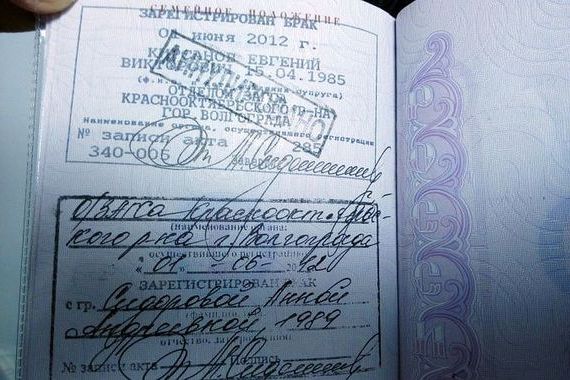 СЕМЕЙНОЕ ПОЛОЖЕНИЕ
ЗАРЕГИСТРИРОВАН БРАК
01 июня 2012 г.
ЕВГЕНИЙ
15.04.1985
(ф.и. супруга)
ОТДЕЛОМ
КРАСНООКТЯБРЬСКОГО Р-НА
ГОР. ВОЛГОГРАДА
Наименование органа, осуществившего регистрацию
№ записи акта 285
340-006 Заверил
О/ЗАГСа Краснооктябрьс-
(наименование органа,
кого р-на г. Волгограда
осуществившего регистрацию)
"01" - 06 - 2012
ЗАРЕГИСТРИРОВАН БРАК
с гр. Сидоровой Анной
(фамилия,
Андреевной, 1989
отчество, дата рождения)
№ записи акта Подпись